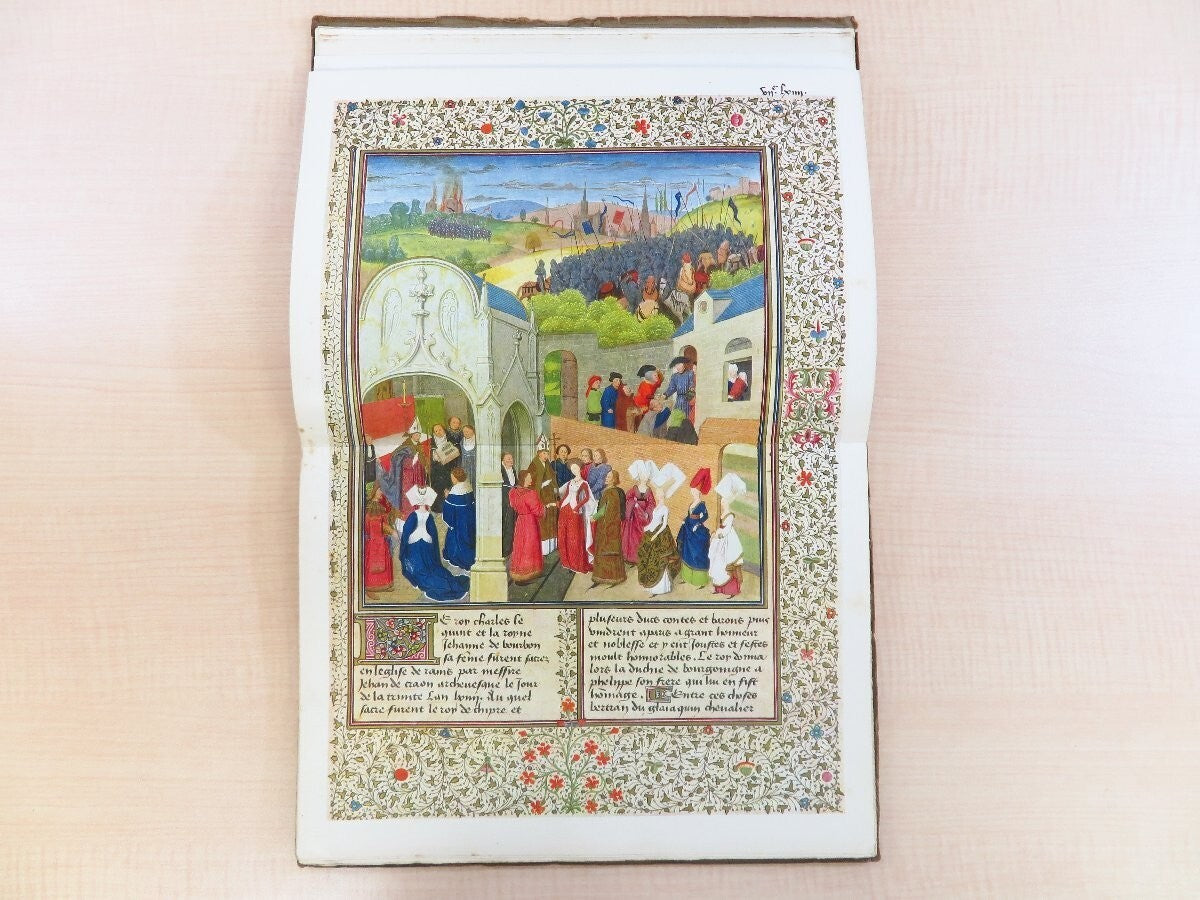 E roy charles le
quint et la royne
Jehanne de bourbon
sa fẽme furent sacrez
en leglise de rains par messire
Jehan de craon archevesque le Jour
de la trinite Lan lxiiij. Au quel
sacre furent le roy de chipre et
pluseurs ducs contes et barons puis
vindrent a paris a grant honneur
et noblesse et y eut Joustes et festes
moult honnorables. Le roy donna
lors la duchie de bourgoingne a
phelippe son frere qui lui en fist
hõmage. Entre ces choses
bertran du glaiaquin chevalier